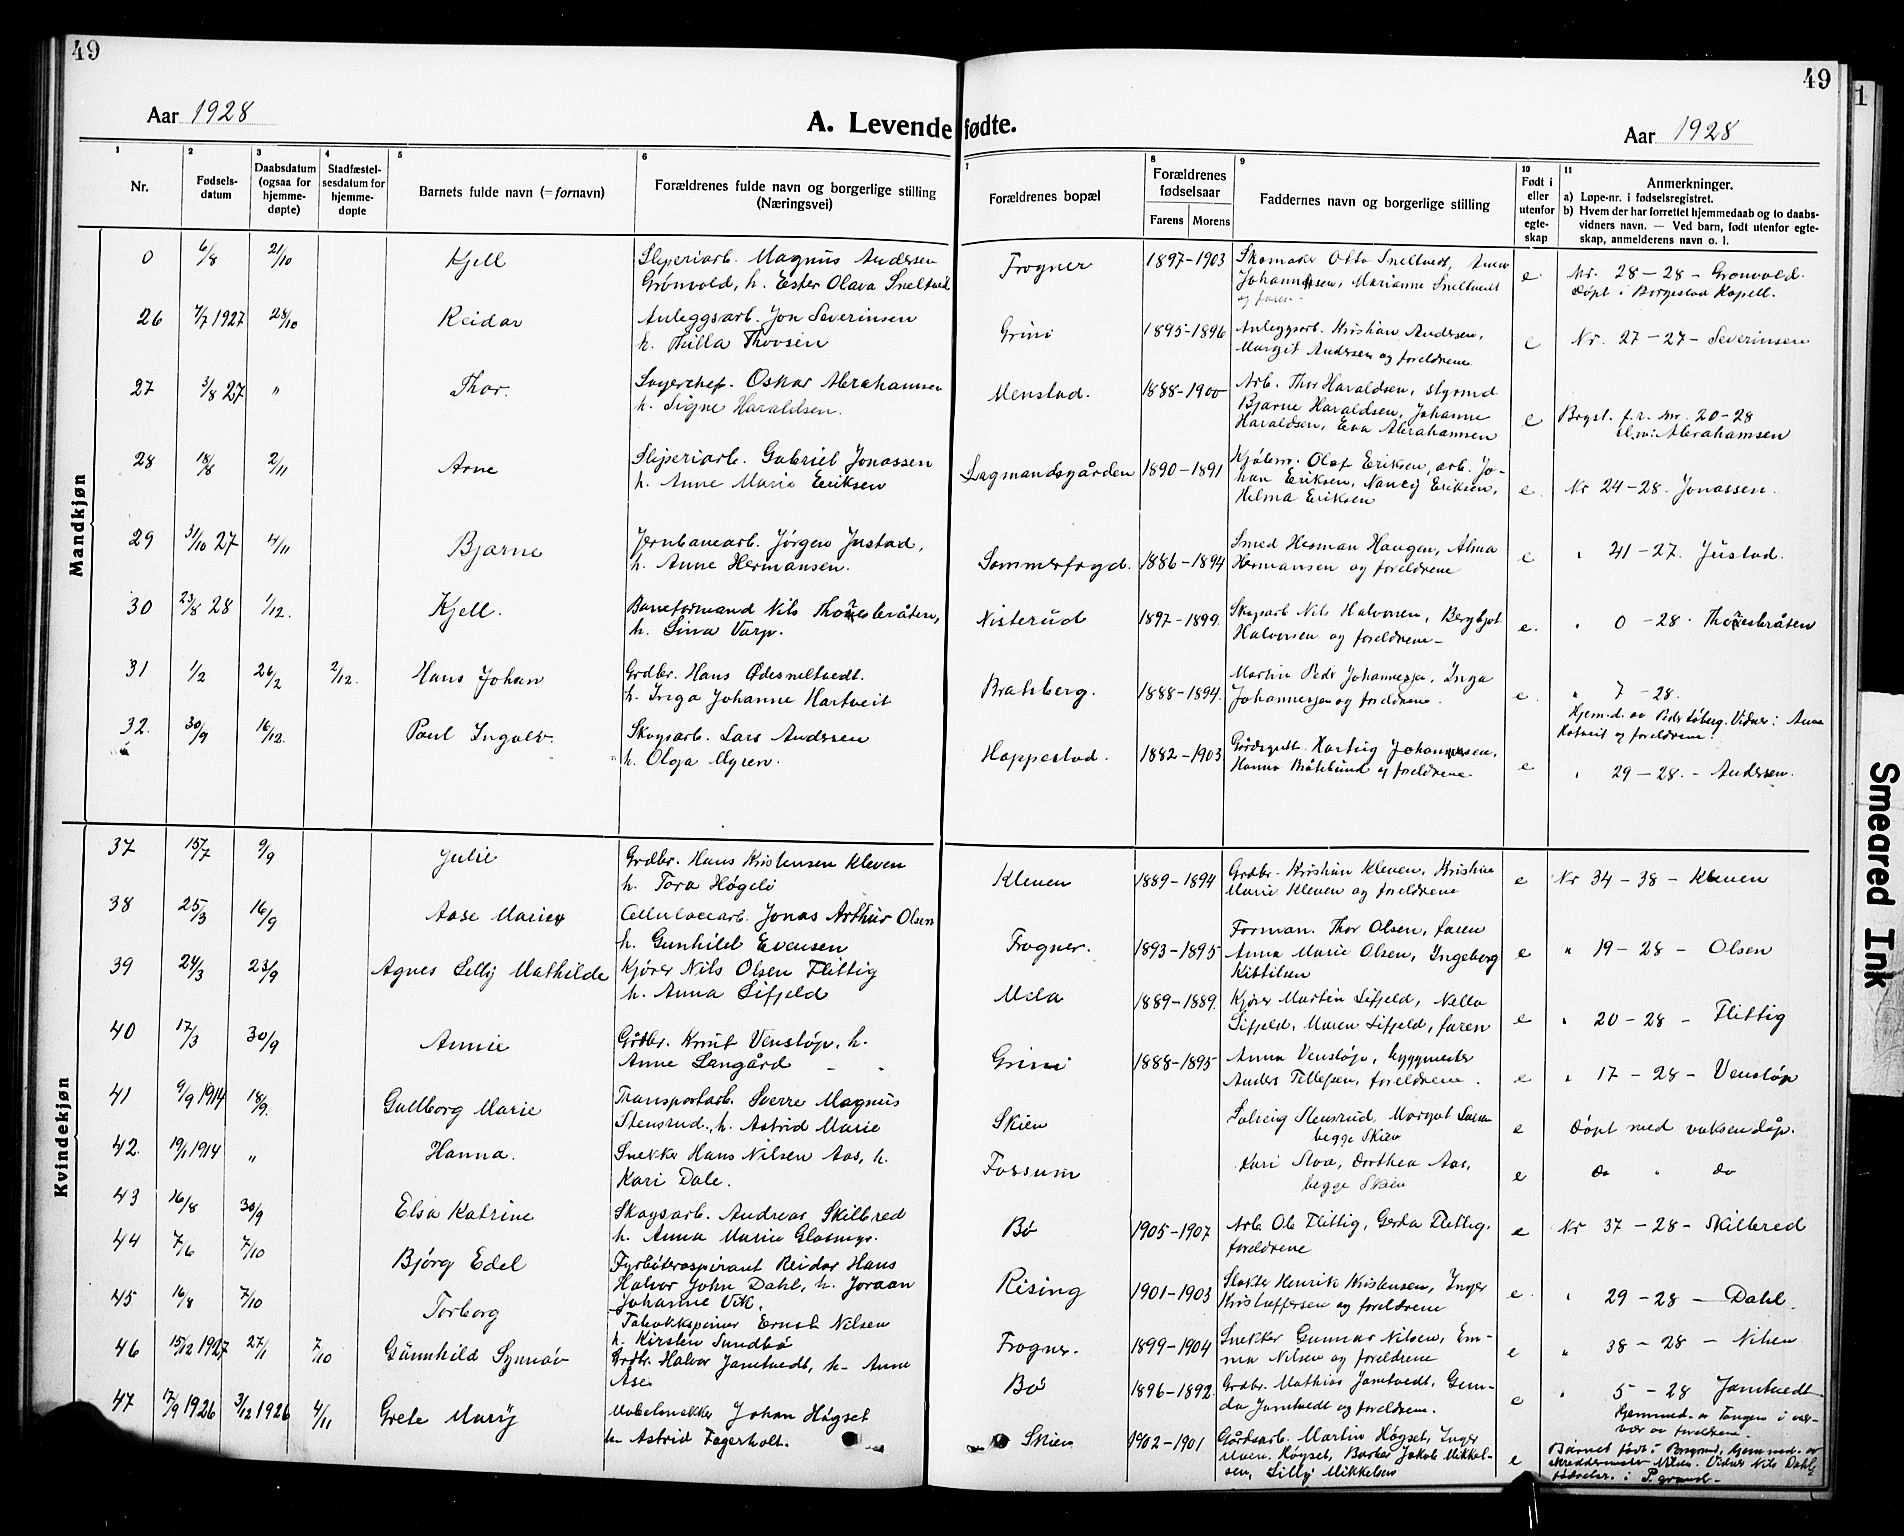 49
49
1
Aar 1928
A. Levende fødte.
Aar 1928
1
Nr.
2
Fødsels-
datum
3
Daabsdatum
(ogsaa for
hjemme-
døpte)
4
Stadfæstel-
sesdatum for
hjemme-
døpte
5
Barnets fulde navn (= fornavn)
6
Forældrenes fulde navn og borgerlige stilling
(Næringsvei)
7
Forældrenes bopæl
8
Forældrenes
fødselsaar
Farens Morens
9
Faddernes navn og borgerlige stilling
10
Født i
eller
utenfor
egte-
skap
11
Anmerkninger.
a) Løpe-nr. i fødselsregistret.
b) Hvem der har forrettet hjemmedaab og to daabs-
vidners navn. — Ved barn, født utenfor egte-
skap, anmelderens navn o. l.
Mandkjøn
0 6/8 21/10 Kjell
Sliperiarb. Magnus Andersen
Grønvold, h. Ester Olava Sneltvedt
Frogner 1897-1903
Skomaker Otto Sneltvedt,
Johannesen, Marianne Sneltvedt
og faren
e. Nr. 28-28 - Grønvold.
Døpt i Borgestad Kapell.
26 7/7 1927 28/10 Reidar
Anleggsarb. Jon Severinsen
h. Hilla Thovsen
Grini 1895-1896
Anleggsarb. Kristian Andersen,
Margit Andersen og foreldrene
e Nr. 27-27 - Severinsen
27 3/8 27 " Thor.
Lagerchef. Oskar Abrahamsen
h. Signe Haraldsen.
Menstad. 1888-1900
Arb. Thor Haraldsen, styrmd.
Bjarne Haraldsen, Johanne
Haraldsen, Eva Abrahamsen
e Bogst. f.r. nr. 20-28
Abrahamsen
28 18/8 2/11 Arne
Sliperiarb. Gabriel Jonassen
h. Anne Marie Eriksen
Lagmandsgården 1890-1891
Kjøbm. Olaf Eriksen, arb. Jo-
han Eriksen, Nancy Eriksen,
Helma Eriksen
e. Nr 24-28. Jonassen.
29 31/10 27 4/11 Bjarne
Jernbanearb. Jørgen Justad,
h. Anne Hermansen.
Sommerfryd. 1886-1894
Smed Herman Haugen, Alma
Hermansen og foreldrene
e " 41-27. Justad.
30 23/8 28 1/12. Kjell.
Baneformand Nils Thoresbråten,
h. Lina Varp.
Nisterud 1897-1899.
Skogsarb Nils Halvorsen, Bergljot
Halvorsen og foreldrene -
e. " 0-28. Thoresbråten
31 1/2 26/2 2/12. Hans Johan
Grdbr. Hans Ødesneltvedt.
h. Inga Johanne Hartveit
Bratsberg. 1888-1894.
Martin Peder Johannessen, Inga
Johannessen og foreldrene.
e. " 7-28.
Hjem.d. av Peder Løberg. Vidner: Anna
og foreldrene.
32. 30/9 16/12. Paul Ingolv.
Skogsarb. Lars Andersen
h. Olga Myren.
Hoppestad. 1882-1903
Hartvig Johannesen,
Hanna Bråtelund og foreldrene.
e " 29-28. - Andersen.
Kvindekjøn
37 15/7 9/9 Julie
Grdbr. Hans Kristensen Kleven
h. Tora Høgeli
Kleven 1889-1894
Grdbr. Kristian Kleven, Kristine
Marie Kleven og foreldrene
e Nr 34-38 - Kleven
38 25/3 16/9 Aase Marie
Cellulosearb. Jonas Arthur Olsen
h. Gunhild Evensen
Frogner. 1893-1895
Forman. Thor Olsen, faren
Anna Marie Olsen, Ingeborg
Kittilsen
e " 19-28 - Olsen
39 24/3 23/9 Agnes Lilly Mathilde
Kjører Nils Olsen Flittig
h. Anna Lifjeld
Mela 1889-1889.
Kjører Martin Lifjeld, Nella
Lifjeld, Maren Lifjeld, faren
e " 20-28 - Flittig
40 17/3 30/9 Annie
Gårdbr. Knut Venstøp, h.
Anne Langård
Grini 1888-1895
Anna Venstøp, byggmester
Anders Tellefsen, foreldrene.
e " 17-28 - Venstøp
41 9/9 1914 18/9. Gullborg Marie
Transportarb. Sverre Magnus
Stensrud, h. Astrid Marie
Skien
Solveig Stensrud, Margot
begge Skien
e Døpt med voksendåp.
42. 19/1 1914 " Hanna.
Snekker Hans Nilsen Aas, h.
Kari Dale.
Fossum
Kari Moa, Dorthea Aas,
begge Skien
e do " do
43 16/8 30/9 Elsa Katrine
Skogsarb. Andreas Skilbred
h. Anna Marie Glasmyr.
Bø 1905-1907
Arb. Ole Flittig, Gerda Flittig,
foreldrene
e Nr 37-28 - Skilbred
44 7/6 7/10 Bjørg Edel
Fyrbøteraspirant Reidar Hans
Halvor John Dahl, h. Joraan
Johanne Vik.
Rising 1901-1903
Slakter Henrik Kristensen, Inger
Kristoffersen og foreldrene
e. " 29-28 - Dahl.
45 16/8 7/10 Torborg
Tobakkspinner Ernst Nilsen
h. Kirsten Sundbø
Frogner. 1899-1904
Snekker Gunnar Nilsen, Em-
ma Nilsen og foreldrene
e " 38-28 - Nilsen
46 15/12 1927 27/11 7/10 Gunnhild Synnøv
Grdbr. Halvor Jamtvedt, h. Anne
Ase
Bø 1896-1892.
Grdbr. Mathias Jamtvedt, Gun-
da Jamtvedt og foreldrene.
e " 5-28 Jamtvedt
Hjemmed. av Tangen i nær-
vær av foreldrene.
47 17/9 1926 3/12 1926 4/11 Grete Mary
Møbelsnekker Johan Høgset
h. Astrid Fagerholt.
Skien 1902-1901
Gårdsarb. Martin Høgset, Inger
Høgset, Barber Jakob Mikkel-
sen, Lilly Mikkelsen
e Barnet født i Porsgrund, hjemmed. av
skreddermester Vidner Nils Dahl
fødselsr. i P.grund.
Smeared Ink